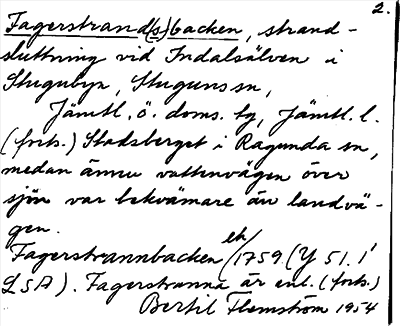 2.
Fagerstrand(s)backen, strand-
sluttning vid Indalsälven i
Stugubyn, Stuguns sn,
Jämtl. ö. doms. tg, Jämtl. l.
(forts.) Stadsberget i Ragunda sn,
medan ännu vattenvägen över
sjön var bekvämare än landvä-
gen.
Fagerstrannbacken ek/1759 (Y 51.1
LSA). Fagerstranna är enl. (forts.)
Bertil Flemström 1954